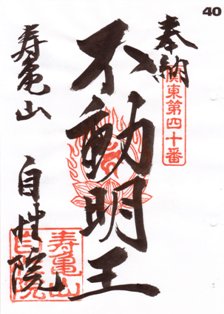 40
奉納
関東第四十番
不動明王
寿亀山
自性院
寿亀山
自性院